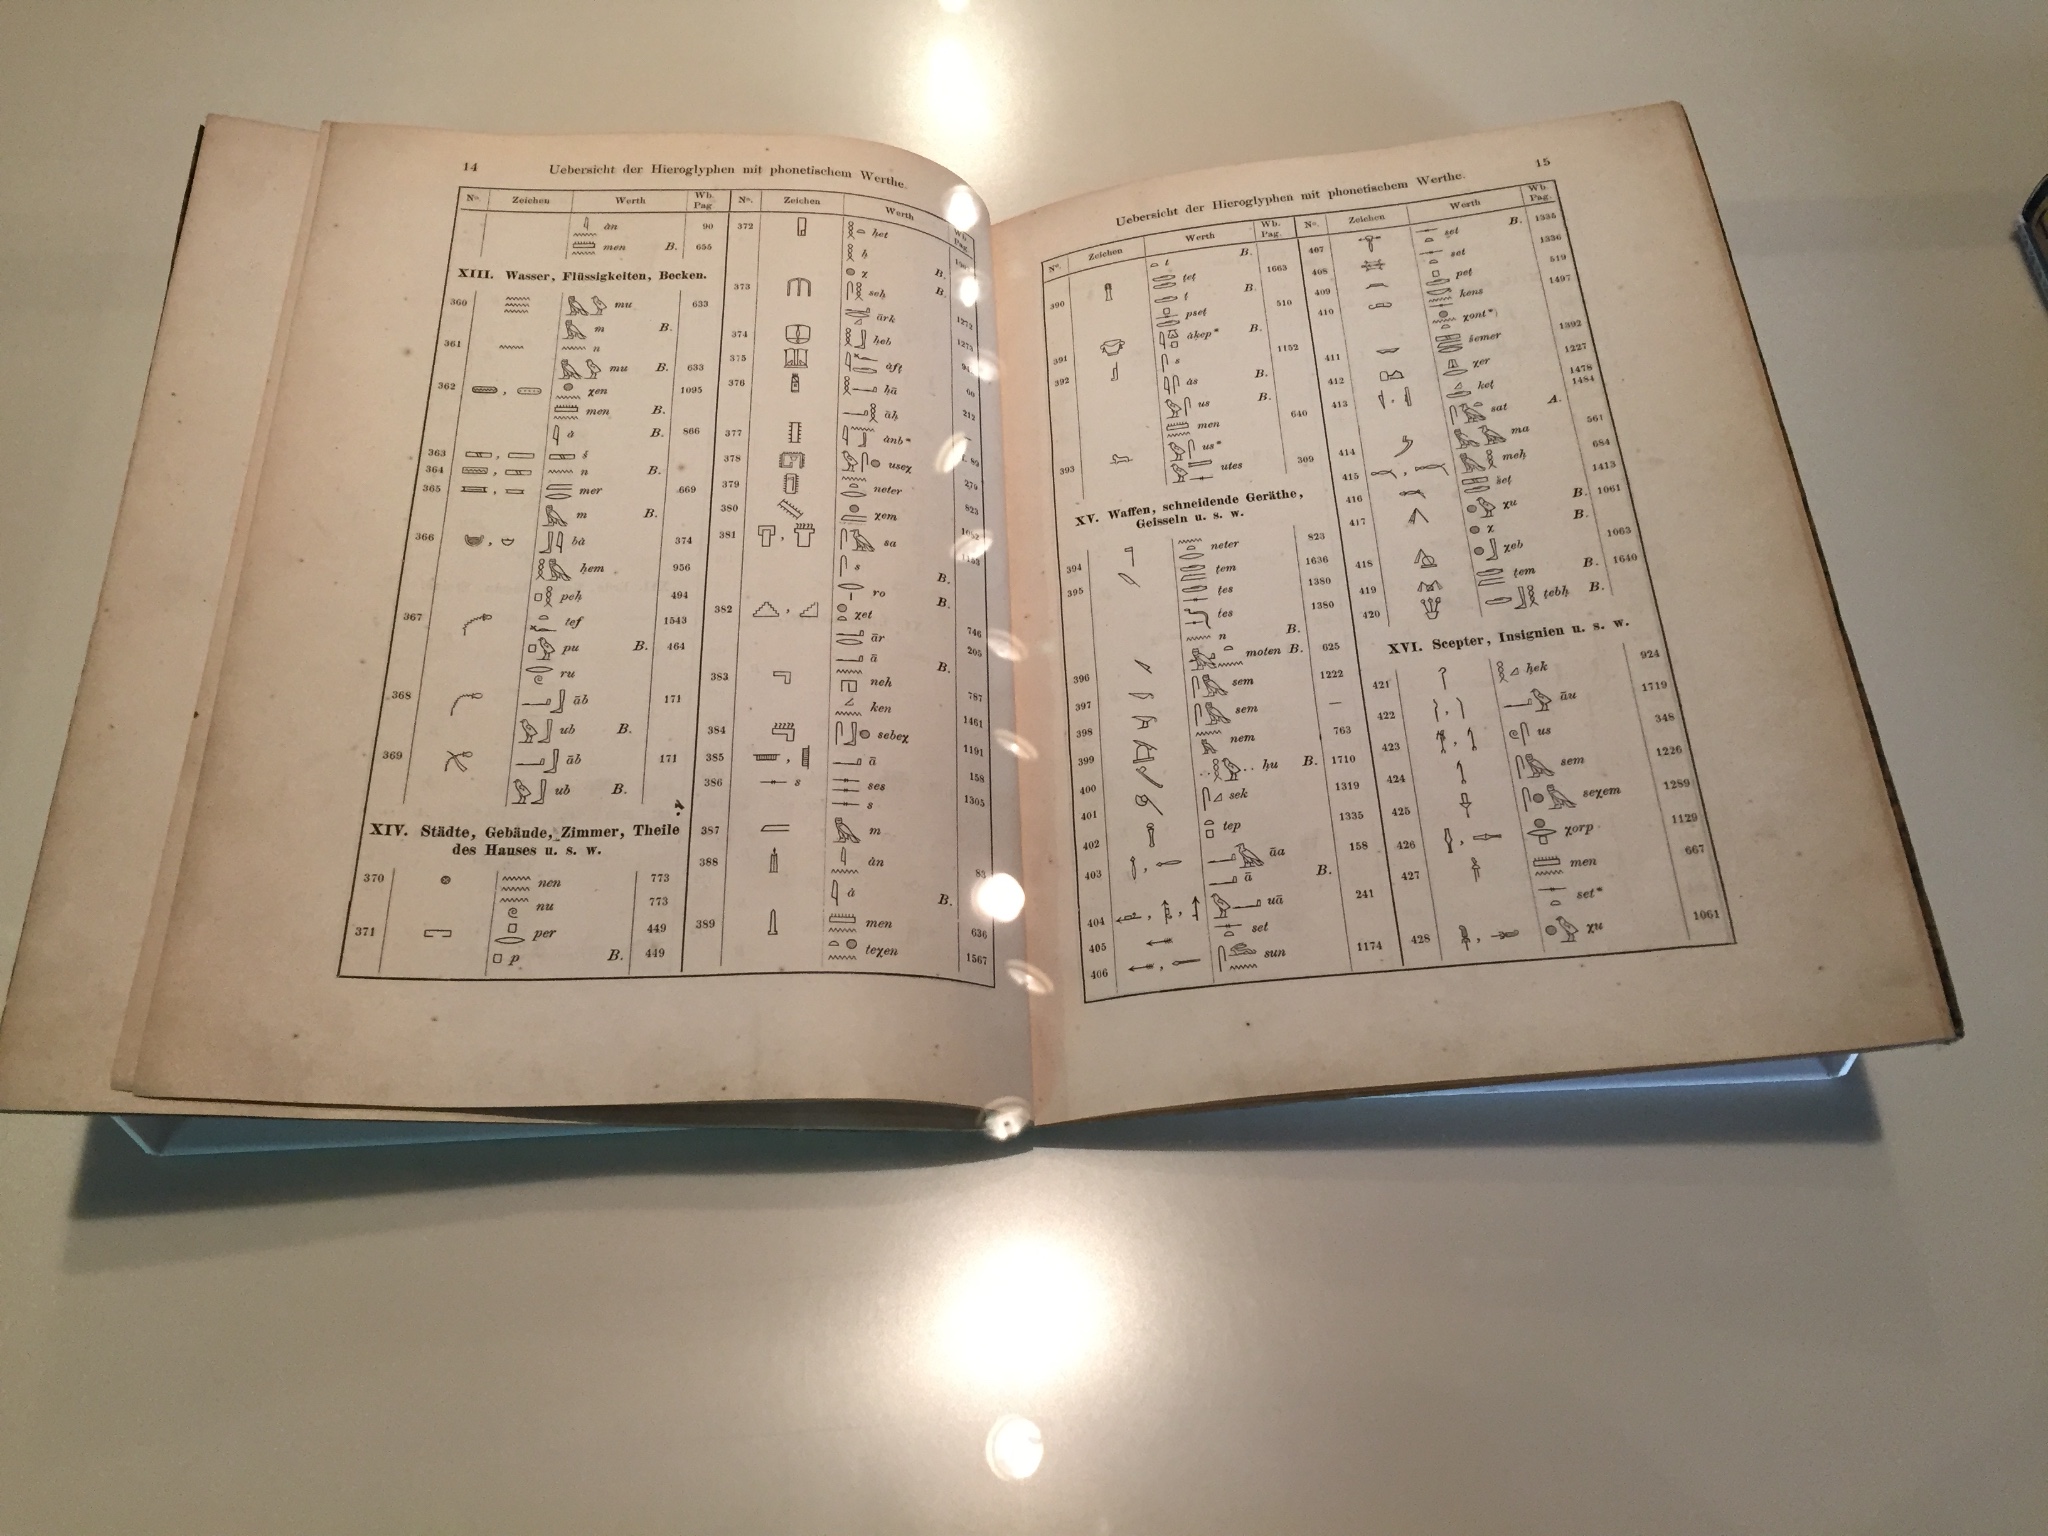 14 Uebersicht der Hieroglyphen mit phonetischem Werthe.
No. Zeichen Werth Wb. Pag.
ȧn 90
men B. 655
XIII. Wasser, Flüssigkeiten, Becken.
360 mu 633
m B.
361 n
mu B. 633
362 , χen 1095
men B.
ȧ B. 866
363 , š
364 , n B.
365 , mer 669
m B.
366 , bȧ 374
ḥem 956
peḥ 494
367 tef 1543
pu B. 464
ru
368 āb 171
ub B.
369 āb 171
ub B.
XIV. Städte, Gebäude, Zimmer, Theile
des Hauses u. s. w.
370 nen 773
nu 773
371 per 449
p B. 449
No. Zeichen Werth Wb. Pag.
372 ḥet
ḥ
χ B.
373 seḥ B.
ārk 1272
374 ḥeb 1273
375 ȧft
376 ḥā 60
āḥ 212
377 ȧnb* —
378 useχ 89
379 neter 279
380 χem 823
381 , sa
s B.
ro B.
382 , χet
ār 746
ā 205
383 neh B.
ken 787
384 sebeχ 1461
385 , ā 1191
386 s ses 158
s 1305
387 m
388 ȧn 83
ȧ B.
389 men 636
teχen 1567
Uebersicht der Hieroglyphen mit phonetischem Werthe. 15
No. Zeichen Werth Wb. Pag.
t B.
390 teṭ 1663
ṭ B.
pset 510
391 ȧkep* B.
s 1152
392 ȧs B.
us B.
men 640
us*
393 utes 309
XV. Waffen, schneidende Geräthe,
Geisseln u. s. w.
394 neter 823
395 ṭem 1636
ṭes 1380
tes 1380
n B.
moten B. 625
396 sem 1222
397 sem —
398 nem 763
399 ḥu B. 1710
400 sek 1319
401 tep 1335
402 āa 158
403 , ā B.
404 , , uā 241
405 set
406 , sun 1174
No. Zeichen Werth Wb. Pag.
407 set B. 1335
408 set 1336
409 pet 519
410 kens 1497
χont*)
411 šemer 1392
412 χer 1227
413 , ket 1478
sat A. 1484
414 ma 561
415 , meḥ 684
416 šet 1413
417 χu B. 1061
χ B.
418 χeb 1063
419 ṭem B. 1640
420 ṭebḥ B.
XVI. Scepter, Insignien u. s. w.
421 ḥek 924
422 , āu 1719
423 , us 348
424 sem 1226
425 seχem 1289
426 , χorp 1129
427 men 667
set*
428 , χu 1061